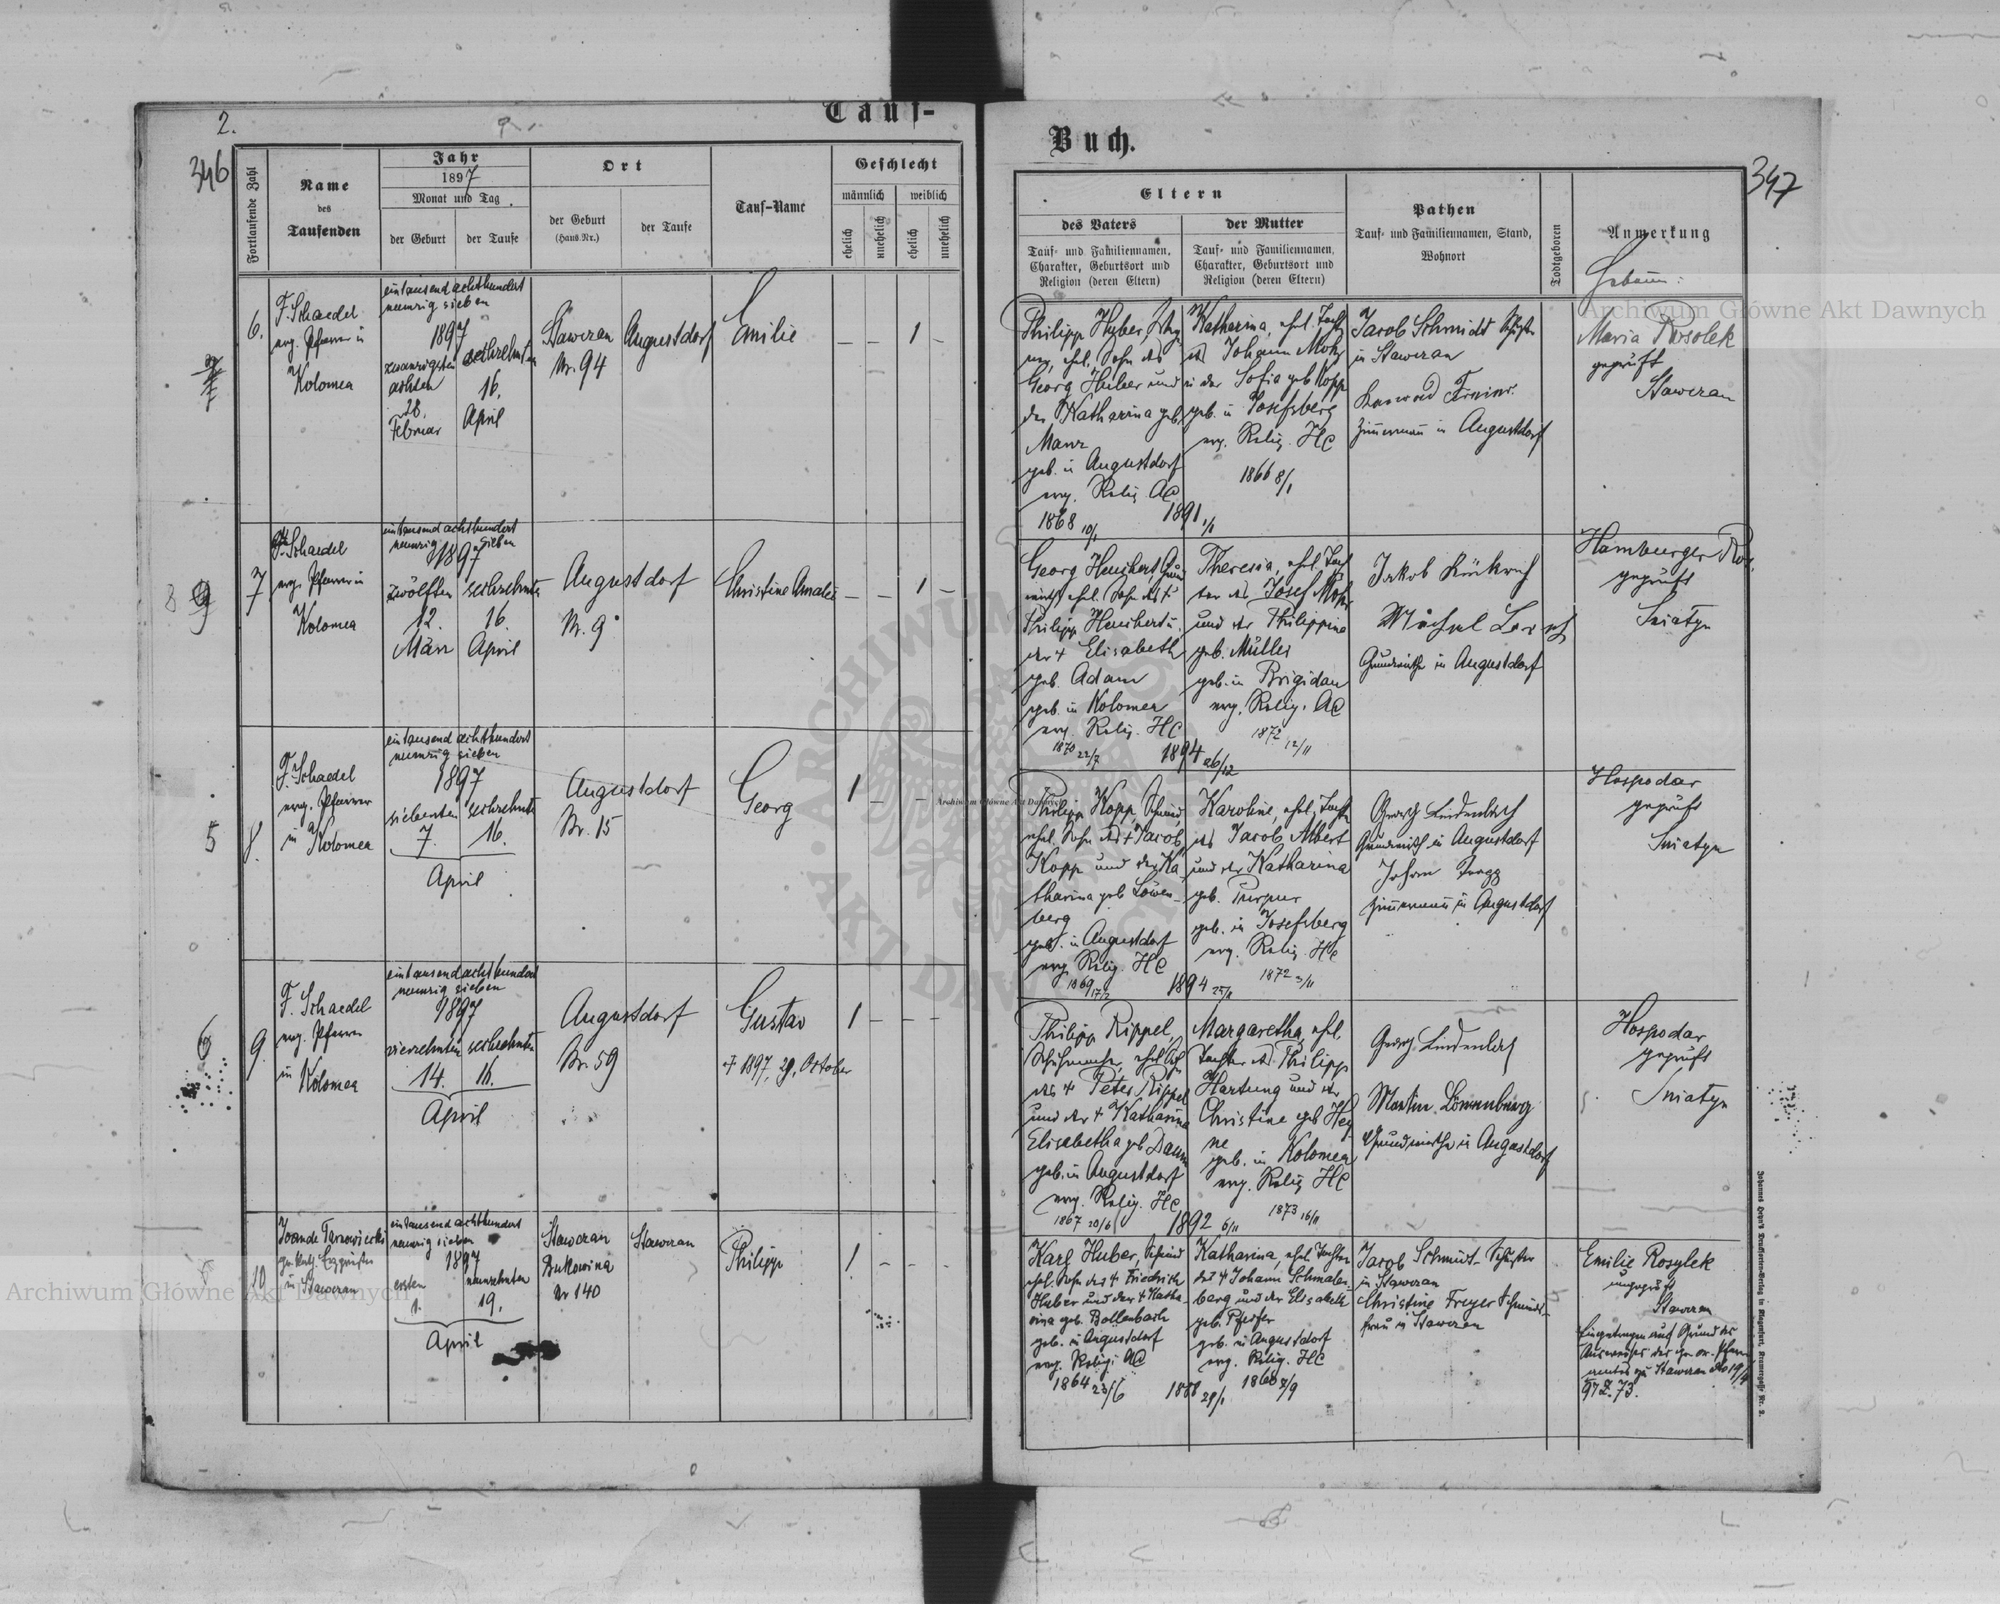 2.
Tauf-
346
Fortlaufende Zahl
Name
des
Taufenden
Jahr
1897
Monat und Tag
der Geburt
der Taufe
Ort
der Geburt
(Haus Nr.)
der Taufe
Tauf-Name
Geschlecht
männlich
weiblich
ehelich
unehelich
ehelich
unehelich
6.
F. Schaedel
evg. Pfarrer in
Kolomea
eintausend achthundert
neunzig sieben
1897
zwanzigsten
achten
28.
Februar
sechzehnten
16.
April
Stawczan
Nr. 94
Augustdorf
Emilie
— — 1 —
7
F. Schaedel
evg. Pfarrer in
Kolomea
eintausend achthundert
neunzig sieben
1897
zwölften
12.
März
sechzehnten
16.
April
Augustdorf
Nr. 9
Christine Amalie
— — 1 —
5
8.
F. Schaedel
evg. Pfarrer
in Kolomea
eintausend achthundert
neunzig sieben
1897
siebenten
7.
sechzehnten
16.
April
Augustdorf
Nr. 15
Georg
1 — —
6
9.
F. Schaedel
evg. Pfarrer
in Kolomea
eintausend achthundert
neunzig sieben
1897
vierzehnten
14.
sechzehnten
16.
April
Augustdorf
Nr. 59
Gustav
+ 1897, 29. October
1 — — —
10
in Stawczan
eintausend achthundert
neunzig sieben
1897
ersten
1.
neunzehnten
19.
April
Stawczan
Bukowina
Nr 140
Stawczan
Philipp
1 — — —
Buch.
347
Eltern
des Vaters
Tauf- und Familiennamen,
Charakter, Geburtsort und
Religion (deren Eltern)
der Mutter
Tauf- und Familiennamen,
Charakter, Geburtsort und
Religion (deren Eltern)
Pathen
Tauf- und Familiennamen, Stand,
Wohnort
Todtgeboren
Anmerkung
Philipp Huber,
ehl. Sohn des
Georg Huber und
der Katharina geb.
Manz
geb. in Augustdorf
evg. Relig. AC
1868 10/1
Katharina, ehl. Tochter
des Johann Mohr
u der Sofia geb Kopp
geb. in Josefsberg
evg. Relig. HC
1866 8/1
1891 1/1
Jacob Schmidt
in Stawczan
Zimmermann in Augustdorf
Maria Rosolek
geprüft
Stawczan
Georg
ehl. Sohn des +
Philipp
der + Elisabeth
geb. Adam
geb. in Kolomea
evg. Relig. HC
1870 22/7
Theresia, ehl. Toch
ter des Josef Mohr
und der Philippine
geb. Müller
geb. in Brigidau
evg. Relig. AC
1872 12/11
1894 26/12
Jakob
Michel
Grundwirthe in Augustdorf
Hamburger
geprüft
Sniatyn
Philipp Kopp, Schmied,
ehl. Sohn des + Jacob
Kopp und der Ka
tharina geb Löwen-
berg
geb. in Augustdorf
evg Relig. HC
1869 17/2
Karoline, ehl. Tochter
des Jacob Albert
und der Katharina
geb. Purpur
geb. in Josefsberg
evg. Relig. HC
1872 3/11
1894 25/11
Georg
Grundwirth in Augustdorf
Johann
Zimmermann in Augustdorf
Hospodar
geprüft
Sniatyn
Philipp Rippel,
Schuhmacher, ehl Sohn
des + Peter Rippel
und der + Katharina
Elisabetha geb Daum
geb. in Augustdorf
evg. Relig. HC
1867 20/6
Margaretha, ehl.
Tochter des Philipp
Hartung und der
Christine geb Hey
ne
geb. in Kolomea
evg. Relig HC
1873 16/11
1892 6/11
Georg
Martin Löwenberg
Grundwirthe in Augustdorf
Hospodar
geprüft
Sniatyn
Karl Huber, Schmied
ehl. Sohn des + Friedrich
Huber und der + Katha-
rina geb. Bollenbach
geb. in Augustdorf
evg. Relig. AC
1864 23/6
Katharina, ehl. Tochter
des + Johann Schmalen-
berg und der Elisabeth
geb. Pfeifer
geb. in Augustdorf
evg. Relig. HC
1888 29/1
Jacob Schmidt - Schuster
in Stawczan
Christine Freyer Schmieds-
frau in Stawczan
Emilie Rosylek
ungeprüft
Stawczan
Eingetragen auf Grund des
Ausweises des gr. or. Pfarr
amtes zu Stawczan dto 19/4
97 Z. 73.
Archiwum Główne Akt Dawnych
Archiwum Główne Akt Dawnych
Archiwum Główne Akt Dawnych